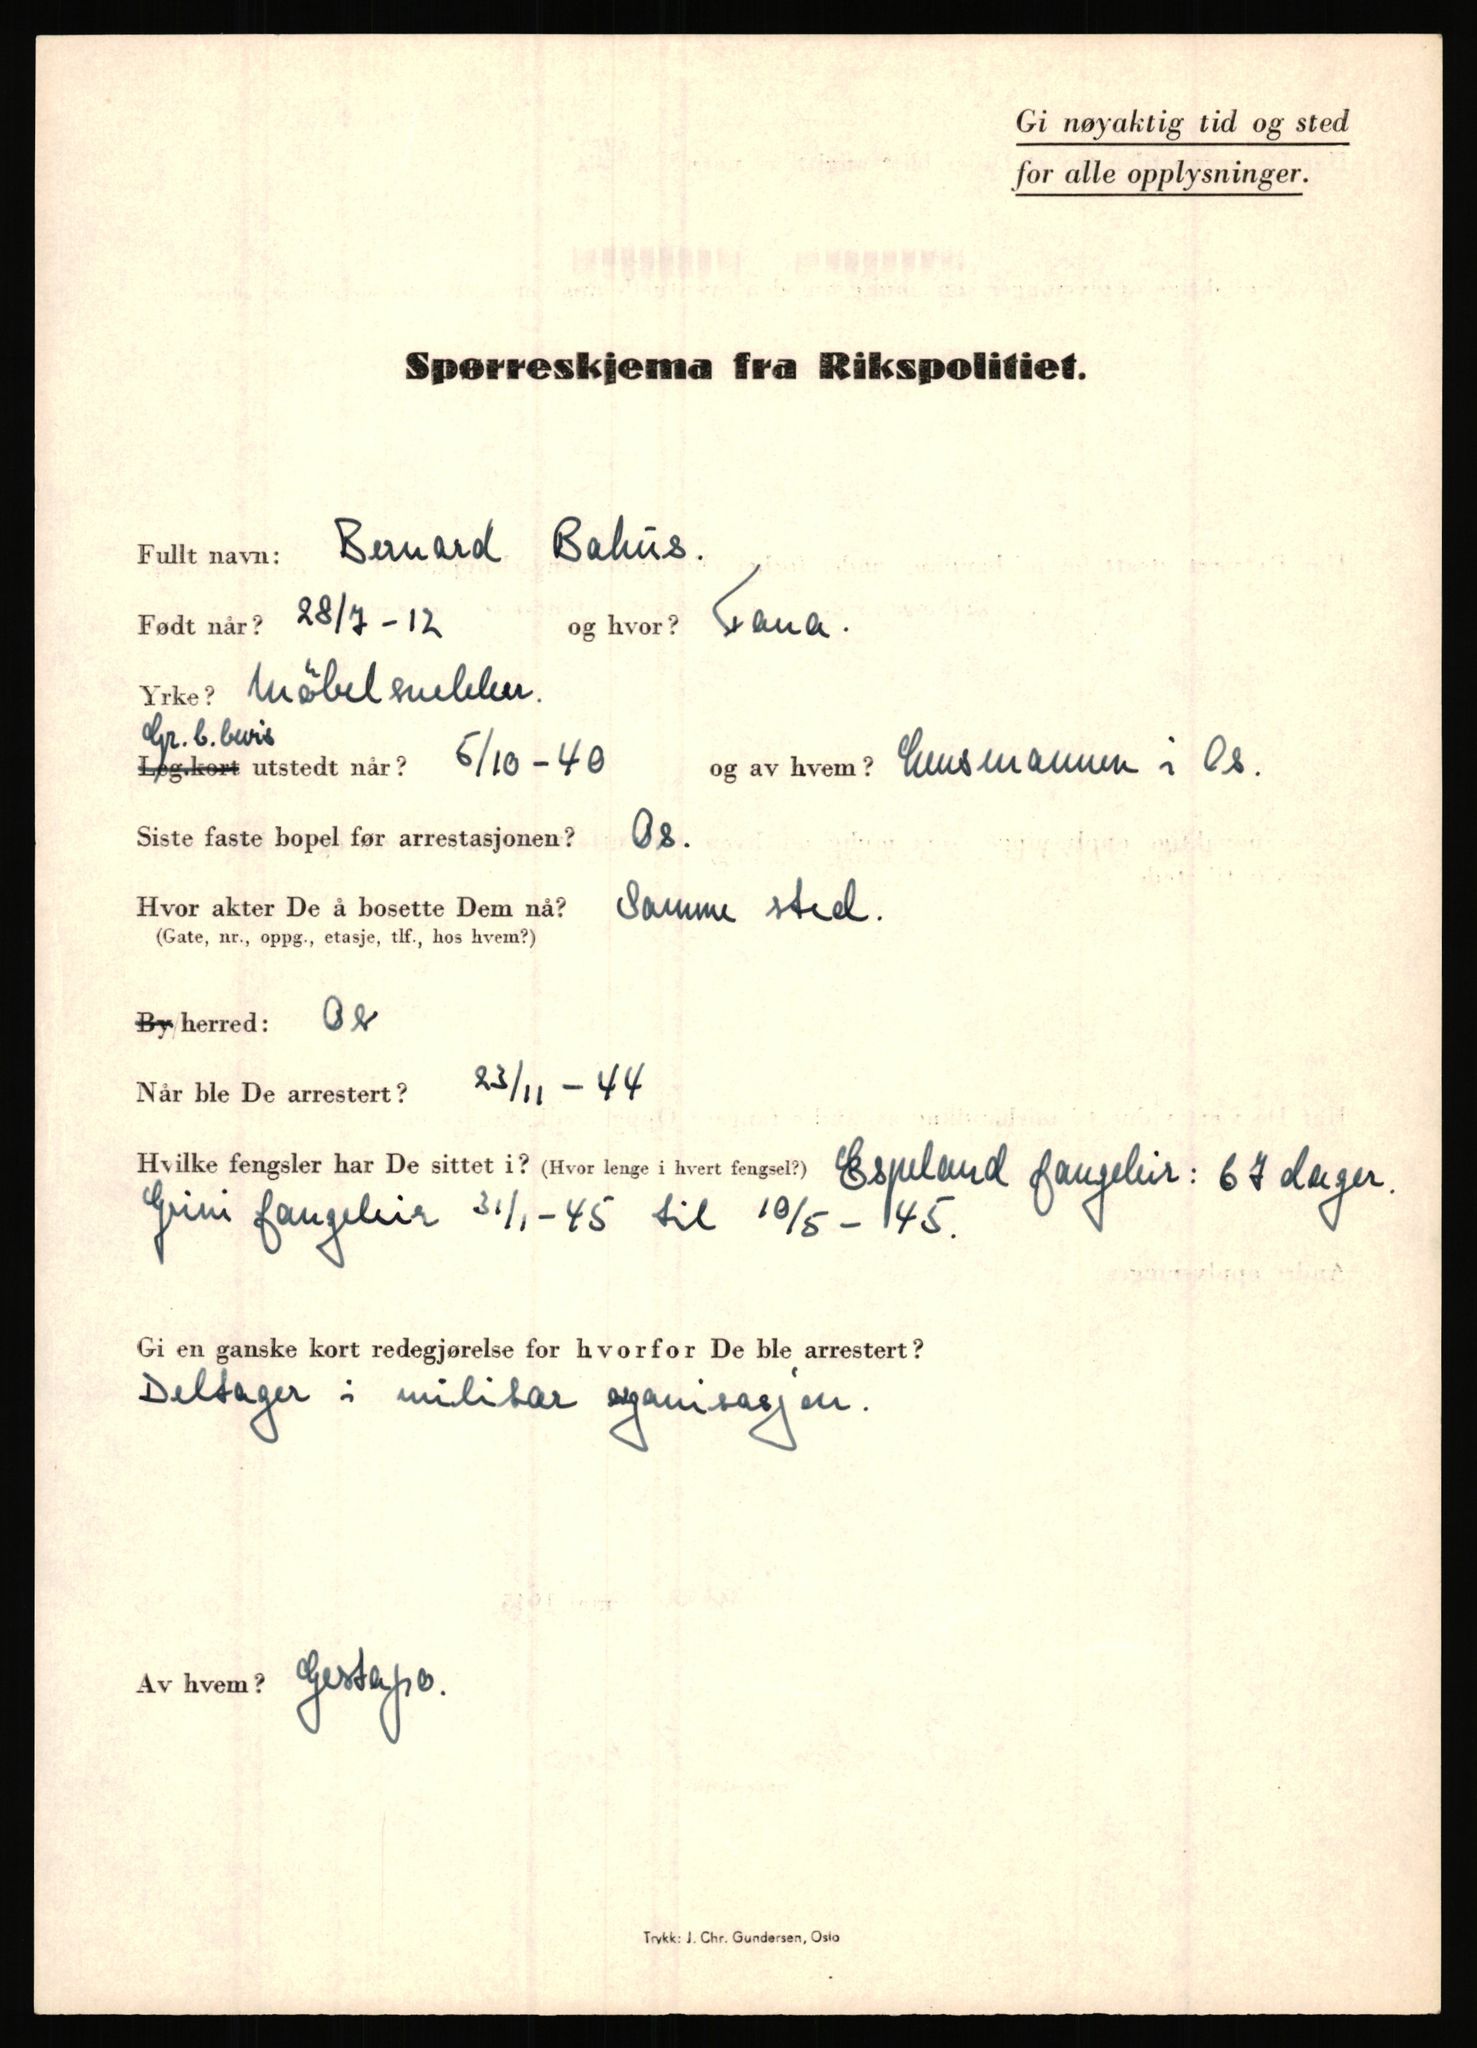 Gi nøyaktig tid og sted
for alle opplysninger.
Spørreskjema fra Rikspolitiet.
Fullt navn: Bernard Bahus.
Født når? 28/7 – 12 og hvor? Fana.
Yrke? Möbelsnekker.
Gr. b. bevis
Leg.kort utstedt når? 5/10 – 40 og av hvem? Lensmannen i Os.
Siste faste bopel før arrestasjonen? Os.
Hvor akter De å bosette Dem nå? Samme sted.
(Gate, nr., oppg., etasje, tlf., hos hvem?)
By/herred: Os
Når ble De arrestert? 23/11 – 44
Hvilke fengsler har De sittet i? (Hvor lenge i hvert fengsel?) Espeland fangeleir: 67 dager.
Grini fangeleir 31/1 – 45 til 10/5 – 45.
Gi en ganske kort redegjørelse for hvorfor De ble arrestert?
Deltager i militær organisasjon.
Av hvem? Gestapo.
Trykk: J. Chr. Gundersen, Oslo